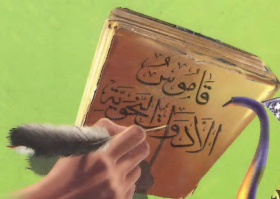 قاموس
الأدوات النحوية